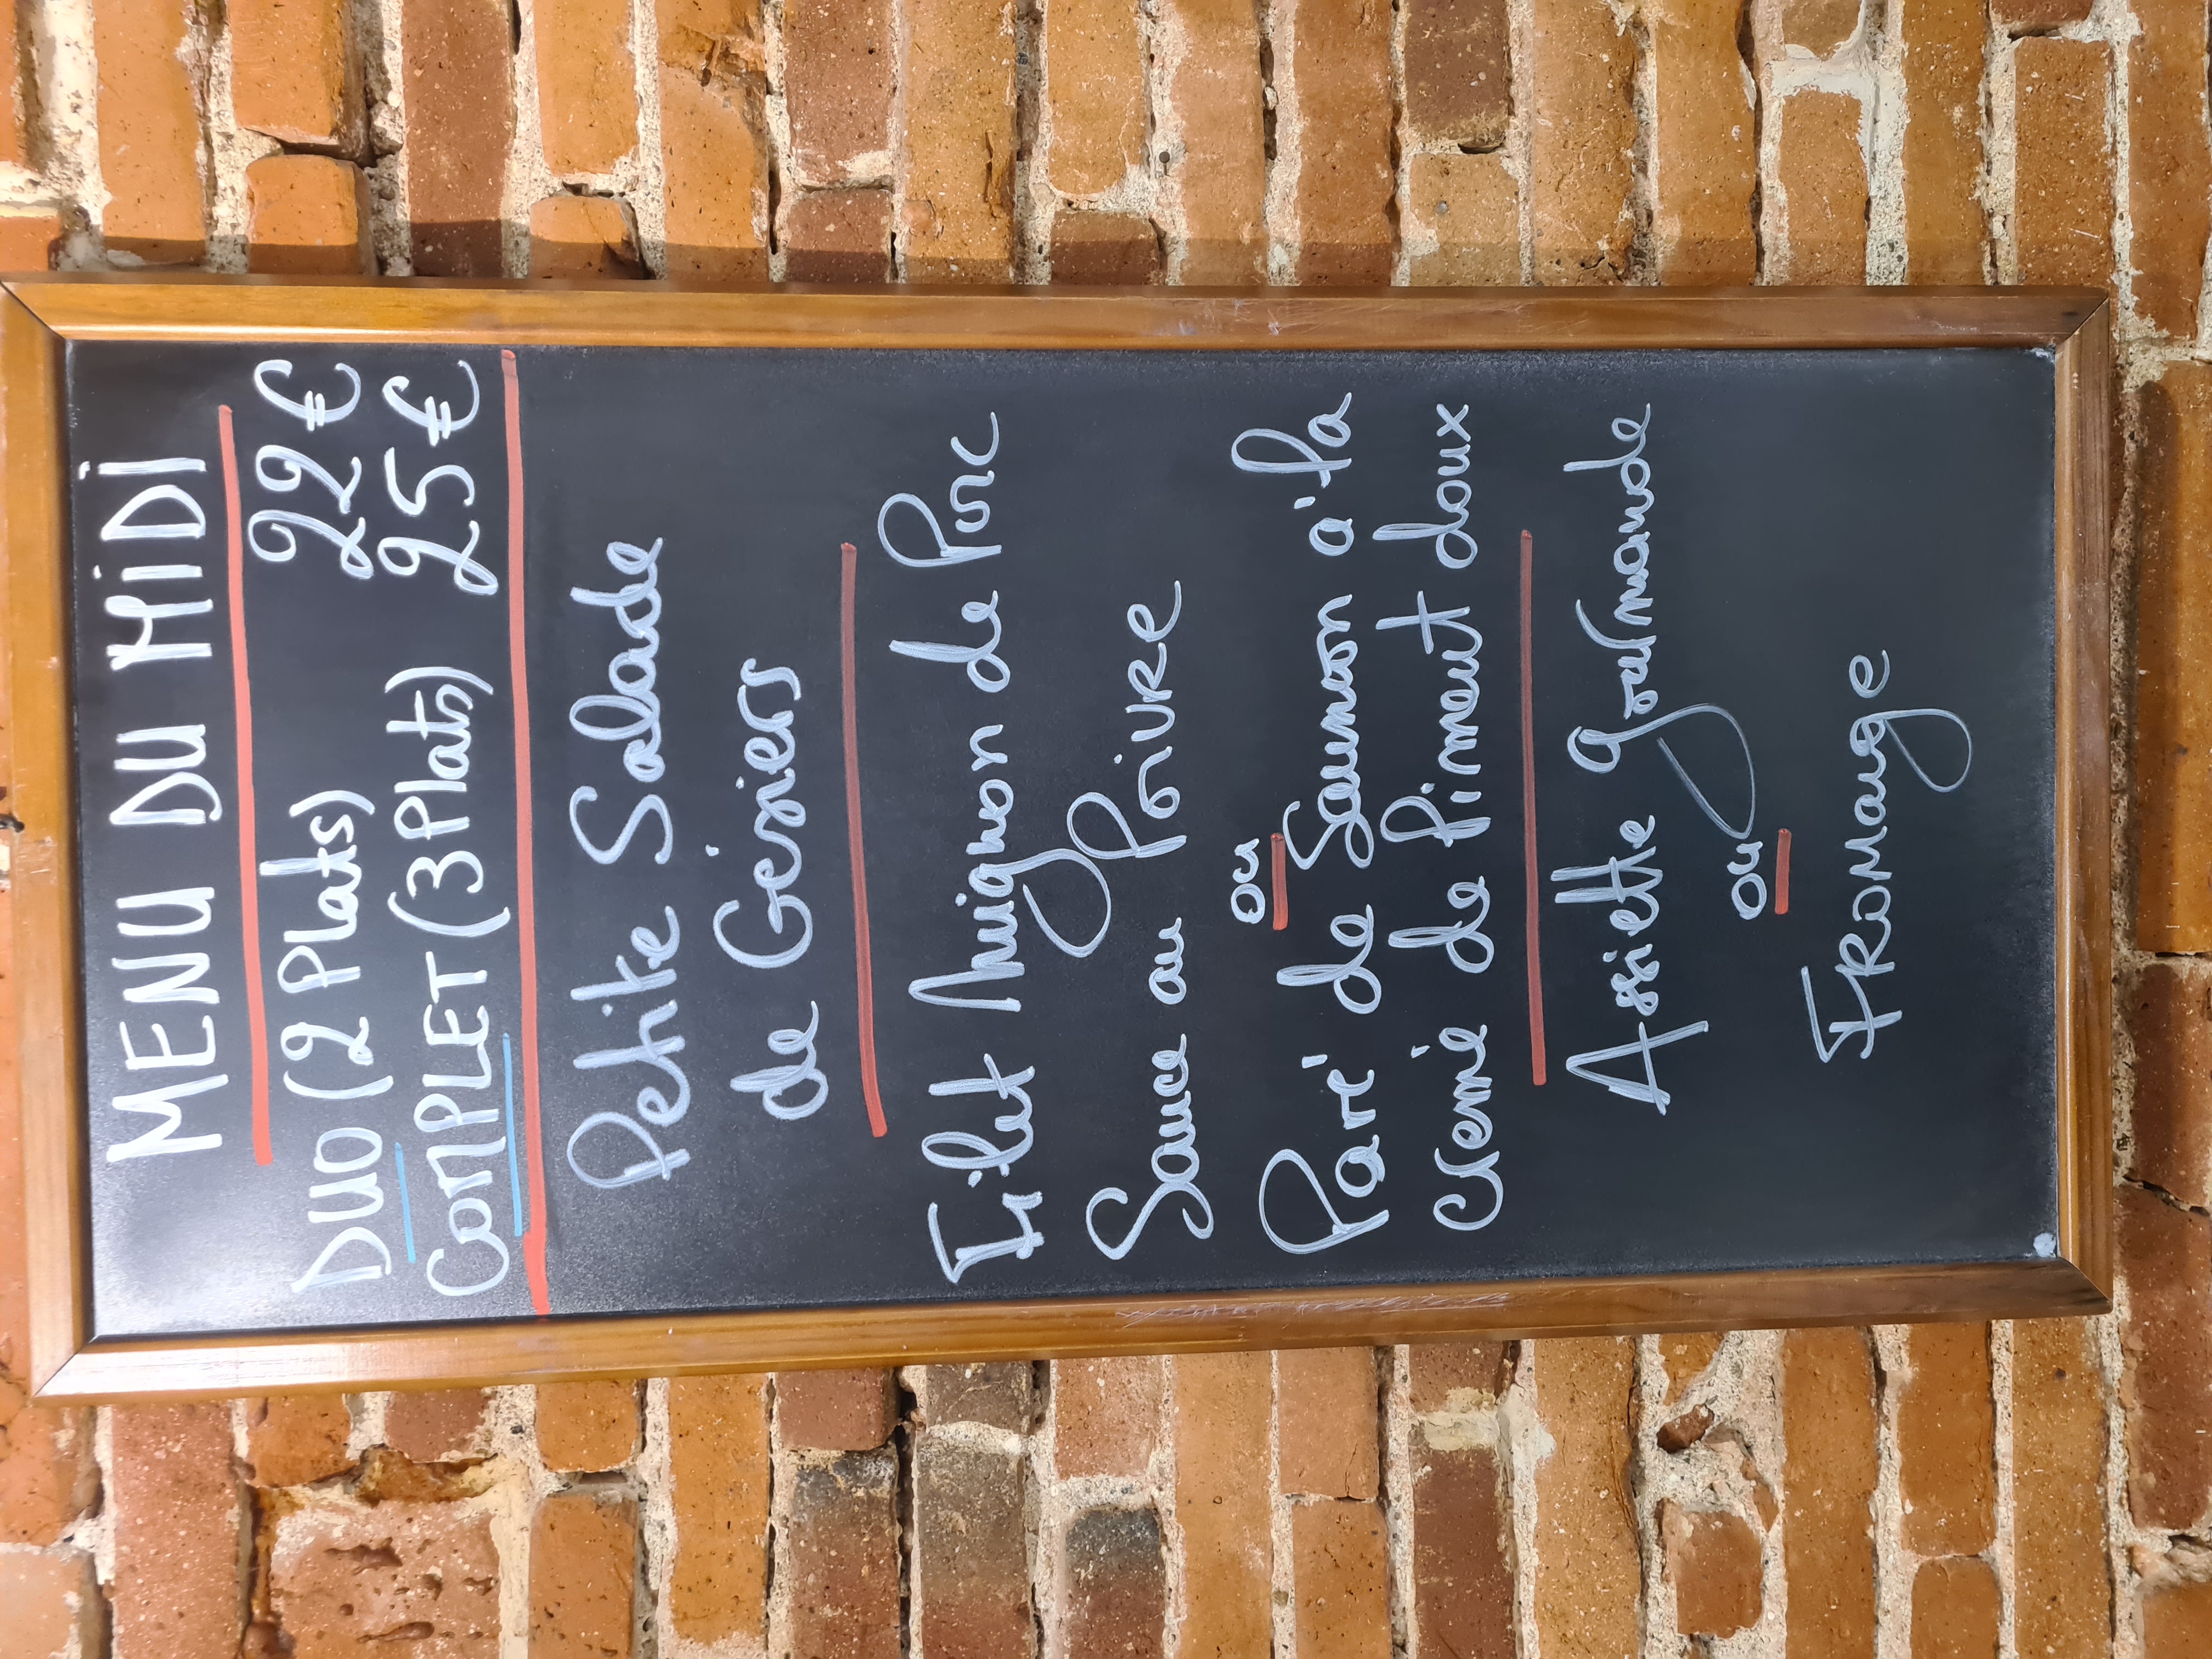 MENU DU MiDi
DUO (2 Plats) 22€
COMPLET (3 Plats) 25€
Petite Salade
de Gésiers
Filet Mignon de Porc
Sauce au Poivre
ou
Pavé de Saumon à la
crème de Piment doux
Assiette gourmande
ou
FROMage